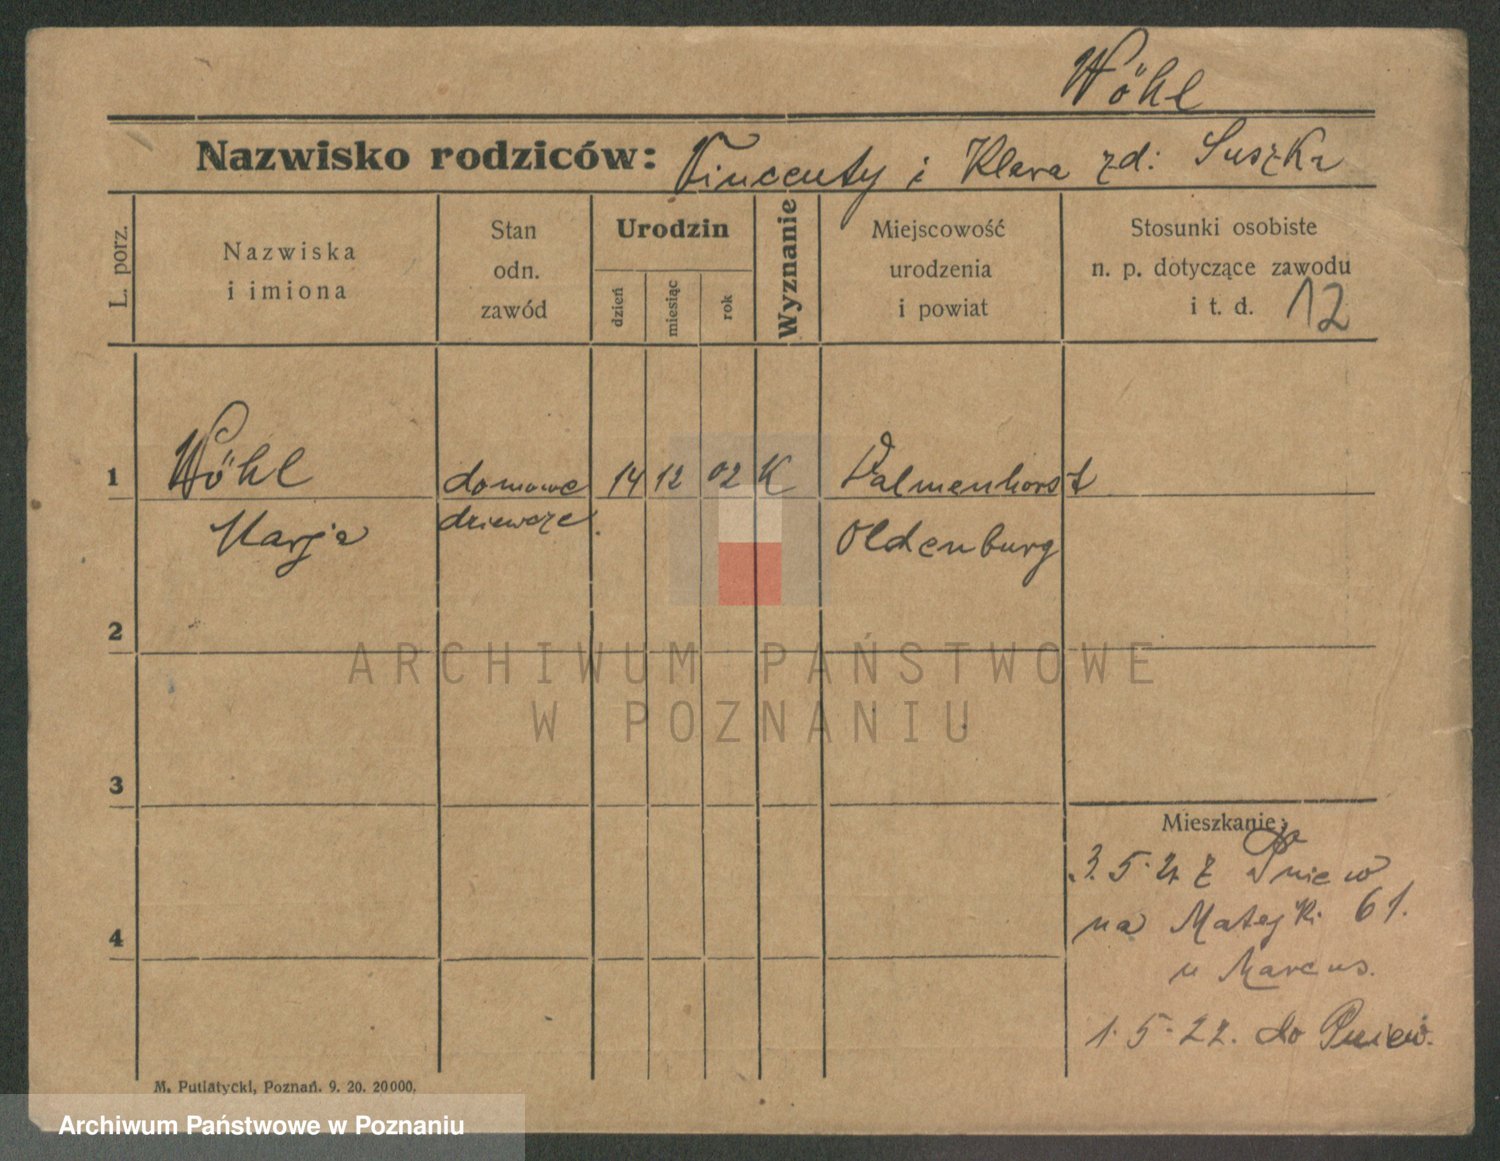 Wöhl
Nazwisko rodziców: Vincenty i Klara zd: Suszka
L. porz.
Nazwiska
i imiona
Stan
odn.
zawód
Urodzin
dzień
miesiąc
rok
Wyznanie
Miejscowość
urodzenia
i powiat
Stosunki osobiste
n. p. dotyczące zawodu
i t. d. 12
1 Wöhl domowe 14 12 02 K Dalmenhorst
Marja dziewczę. Oldenburg
2
3
4
Mieszkanie:
3. 5. 21 z Pniew
na Matejki 61.
u Marcus.
1. 5. 22. do Pniew.
M. Putiatycki, Poznań. 9. 20. 20000.
ARCHIWUM PAŃSTWOWE
W POZNANIU
Archiwum Państwowe w Poznaniu